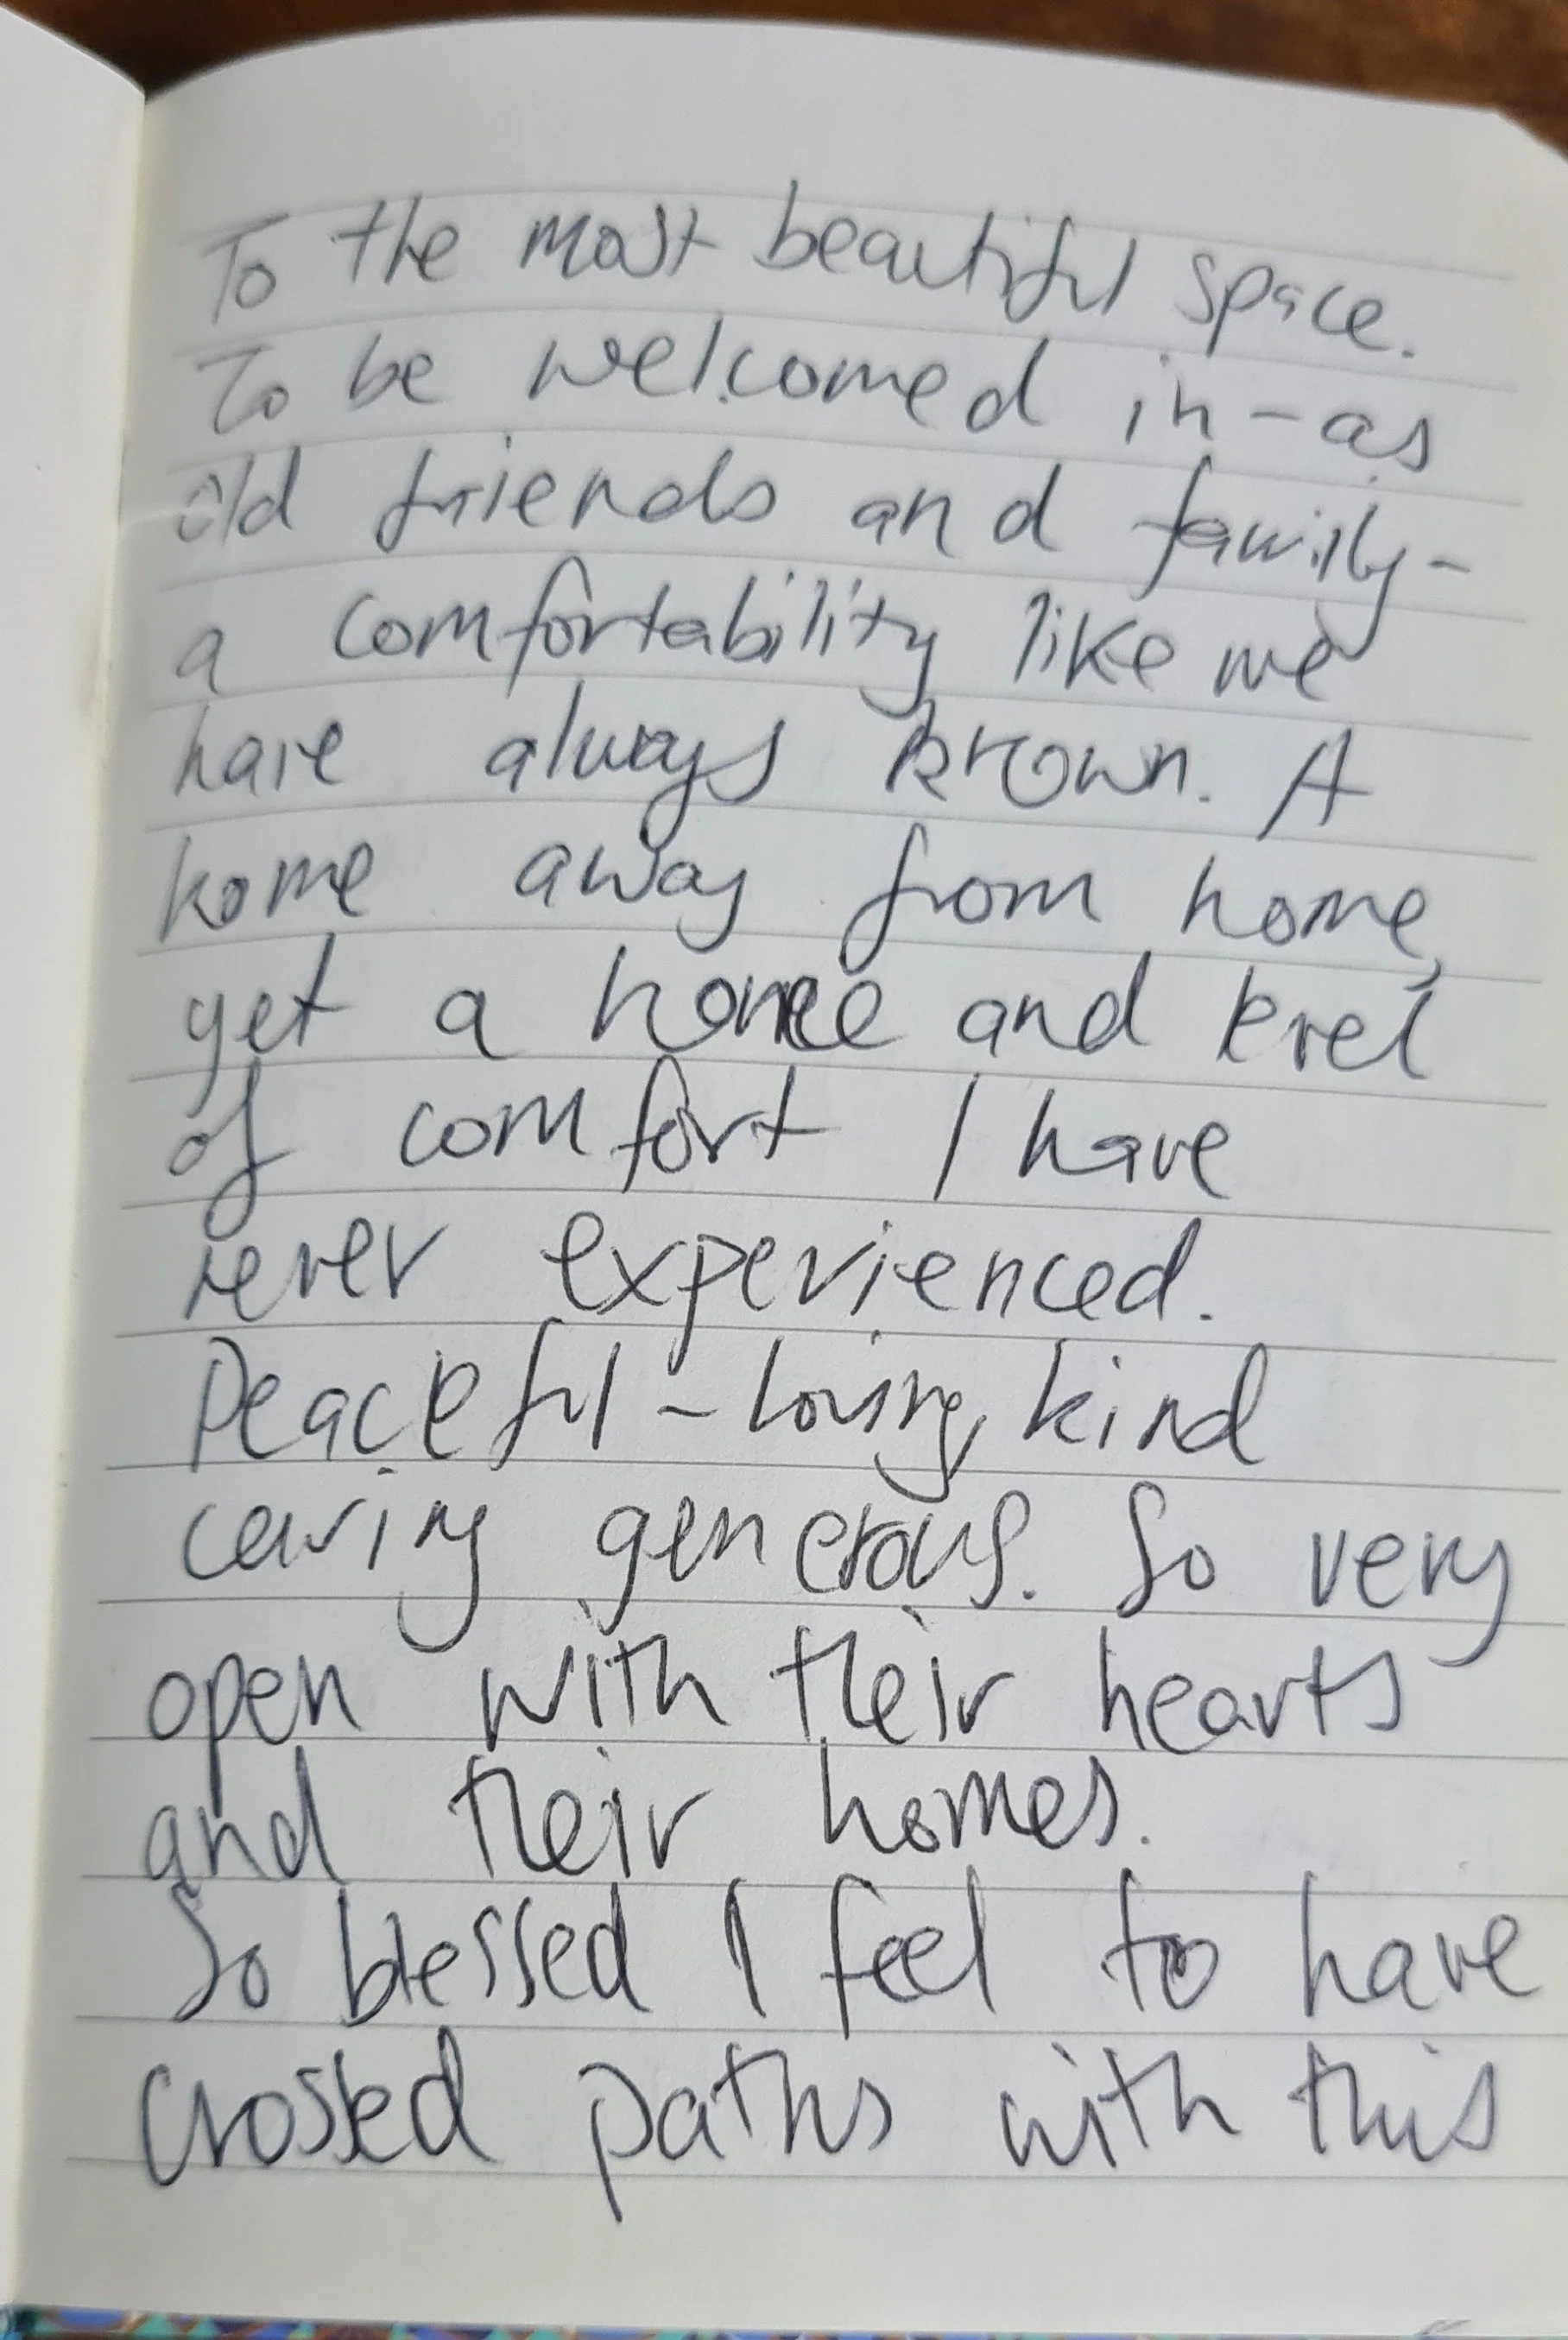 To the most beautiful space.
To be welcomed in - as
old friends and family -
a comfortability like we
have always known. A
home away from home,
yet a home and level
of comfort I have
never experienced.
Peaceful - loving, kind
caring generous. So very
open with their hearts
and their homes.
So blessed I feel to have
crossed paths with this